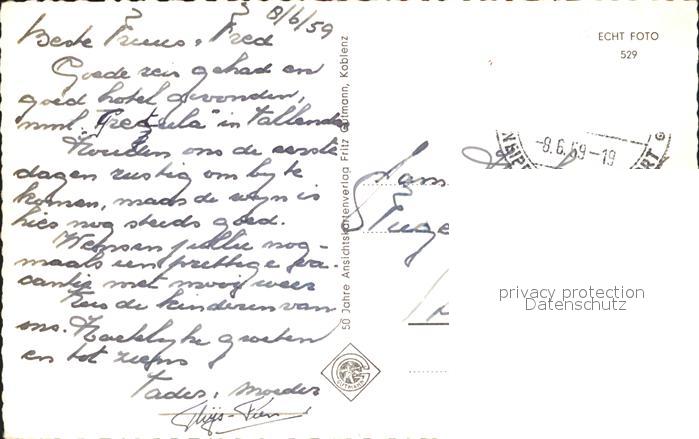 8/6/59
Beste Truus, Fred
Goede reis gehad en
goed hotel gevonden,
nml. "Fretzula" in Vallendar
Houden ons de eerste
dagen rustig om bij te
komen, maar de wijn is
hier nog steeds goed.
Wensen jullie nog-
maals een prettige va-
cantie met mooi weer
Kus de kinderen van
ons. Hartelijke groeten
en tot ziens
Vader, moeder
Thijs - Fien
50 Jahre Ansichtskartenverlag Fritz Gutmann, Koblenz
GUTMANN
ECHT FOTO
529
-8.6.59-19
Fam
privacy protection
Datenschutz